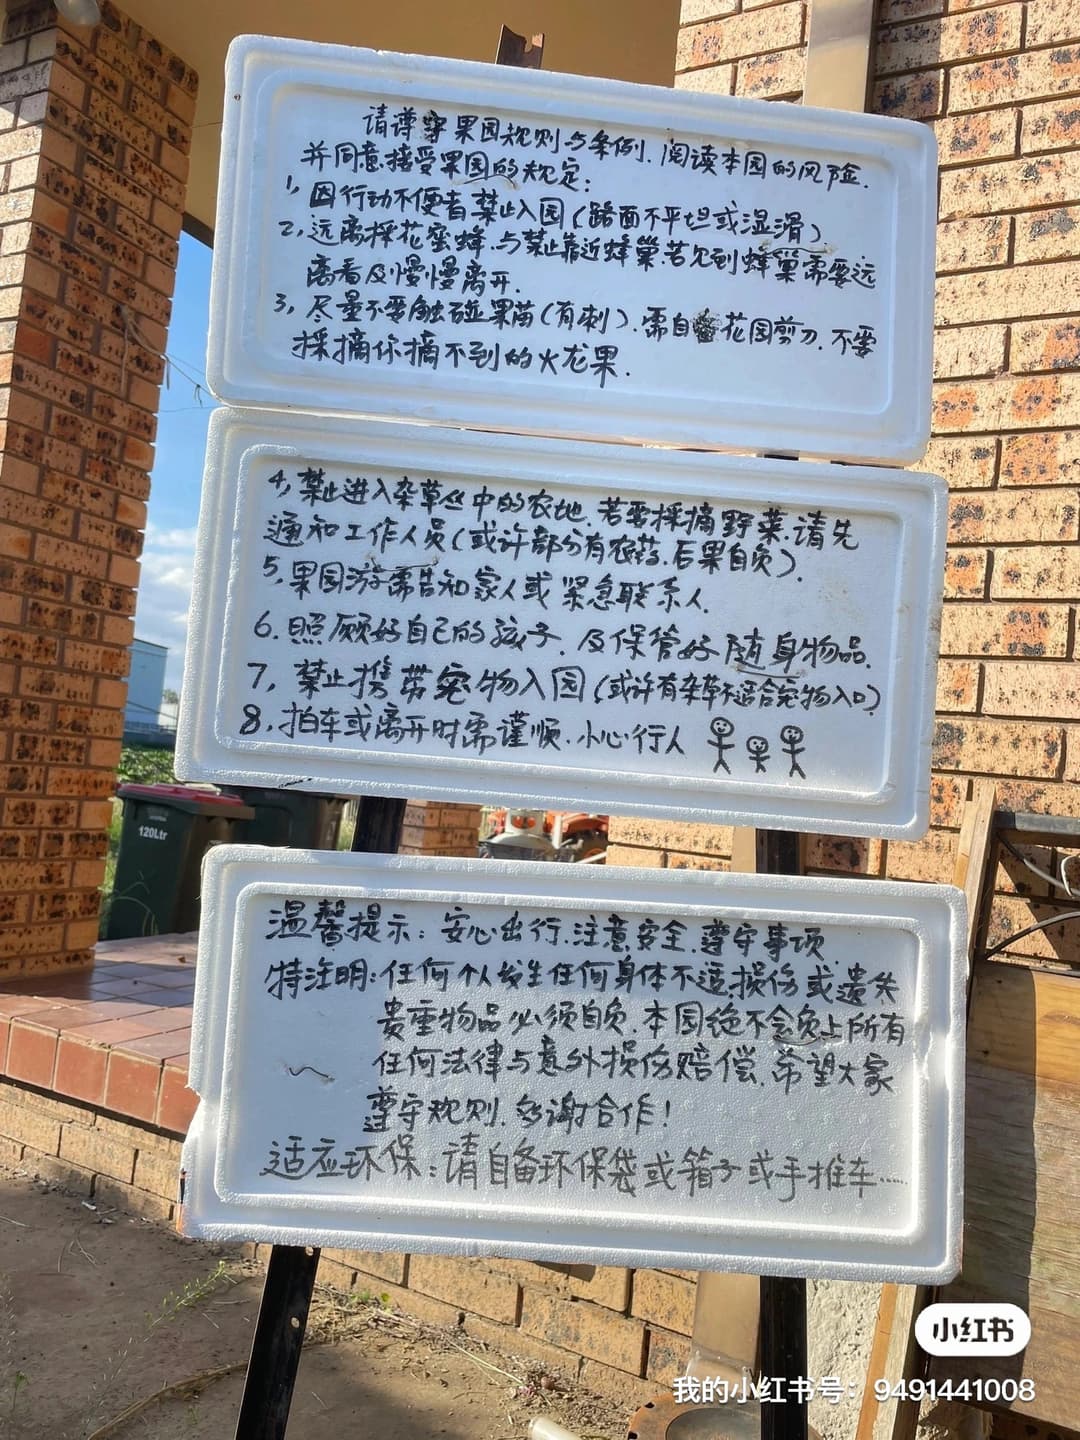 请遵守果园规则与条例.阅读本园的风险.
并同意接受果园的规定:
1,因行动不便者禁止入园(路面不平坦或湿滑)
2,远离採花蜜蜂.与禁止靠近蜂巢.若见到蜂巢需要远
离看及慢慢离开.
3,尽量不要触碰果苗(有刺).需自备花园剪刀.不要
採摘你摘不到的火龙果.
4,禁止进入杂草丛中的农地.若要採摘野菜.请先
通知工作人员(或许部分有农药.后果自负).
5,果园游需告知家人或紧急联系人.
6.照顾好自己的孩子.及保管好随身物品.
7,禁止携带宠物入园(或许有杂草不适合宠物入口)
8.拍车或离开时需谨顺.小心行人
120Ltr
温馨提示:安心出行.注意安全.遵守事项.
特注明:任何个人发生任何身体不适.损伤或遗失
贵重物品必须自负.本园绝不会负上所有
任何法律与意外损伤赔偿.希望大家
遵守规则.多谢合作!
适应环保:请自备环保袋或箱子或手推车......
小红书
我的小红书号:9491441008